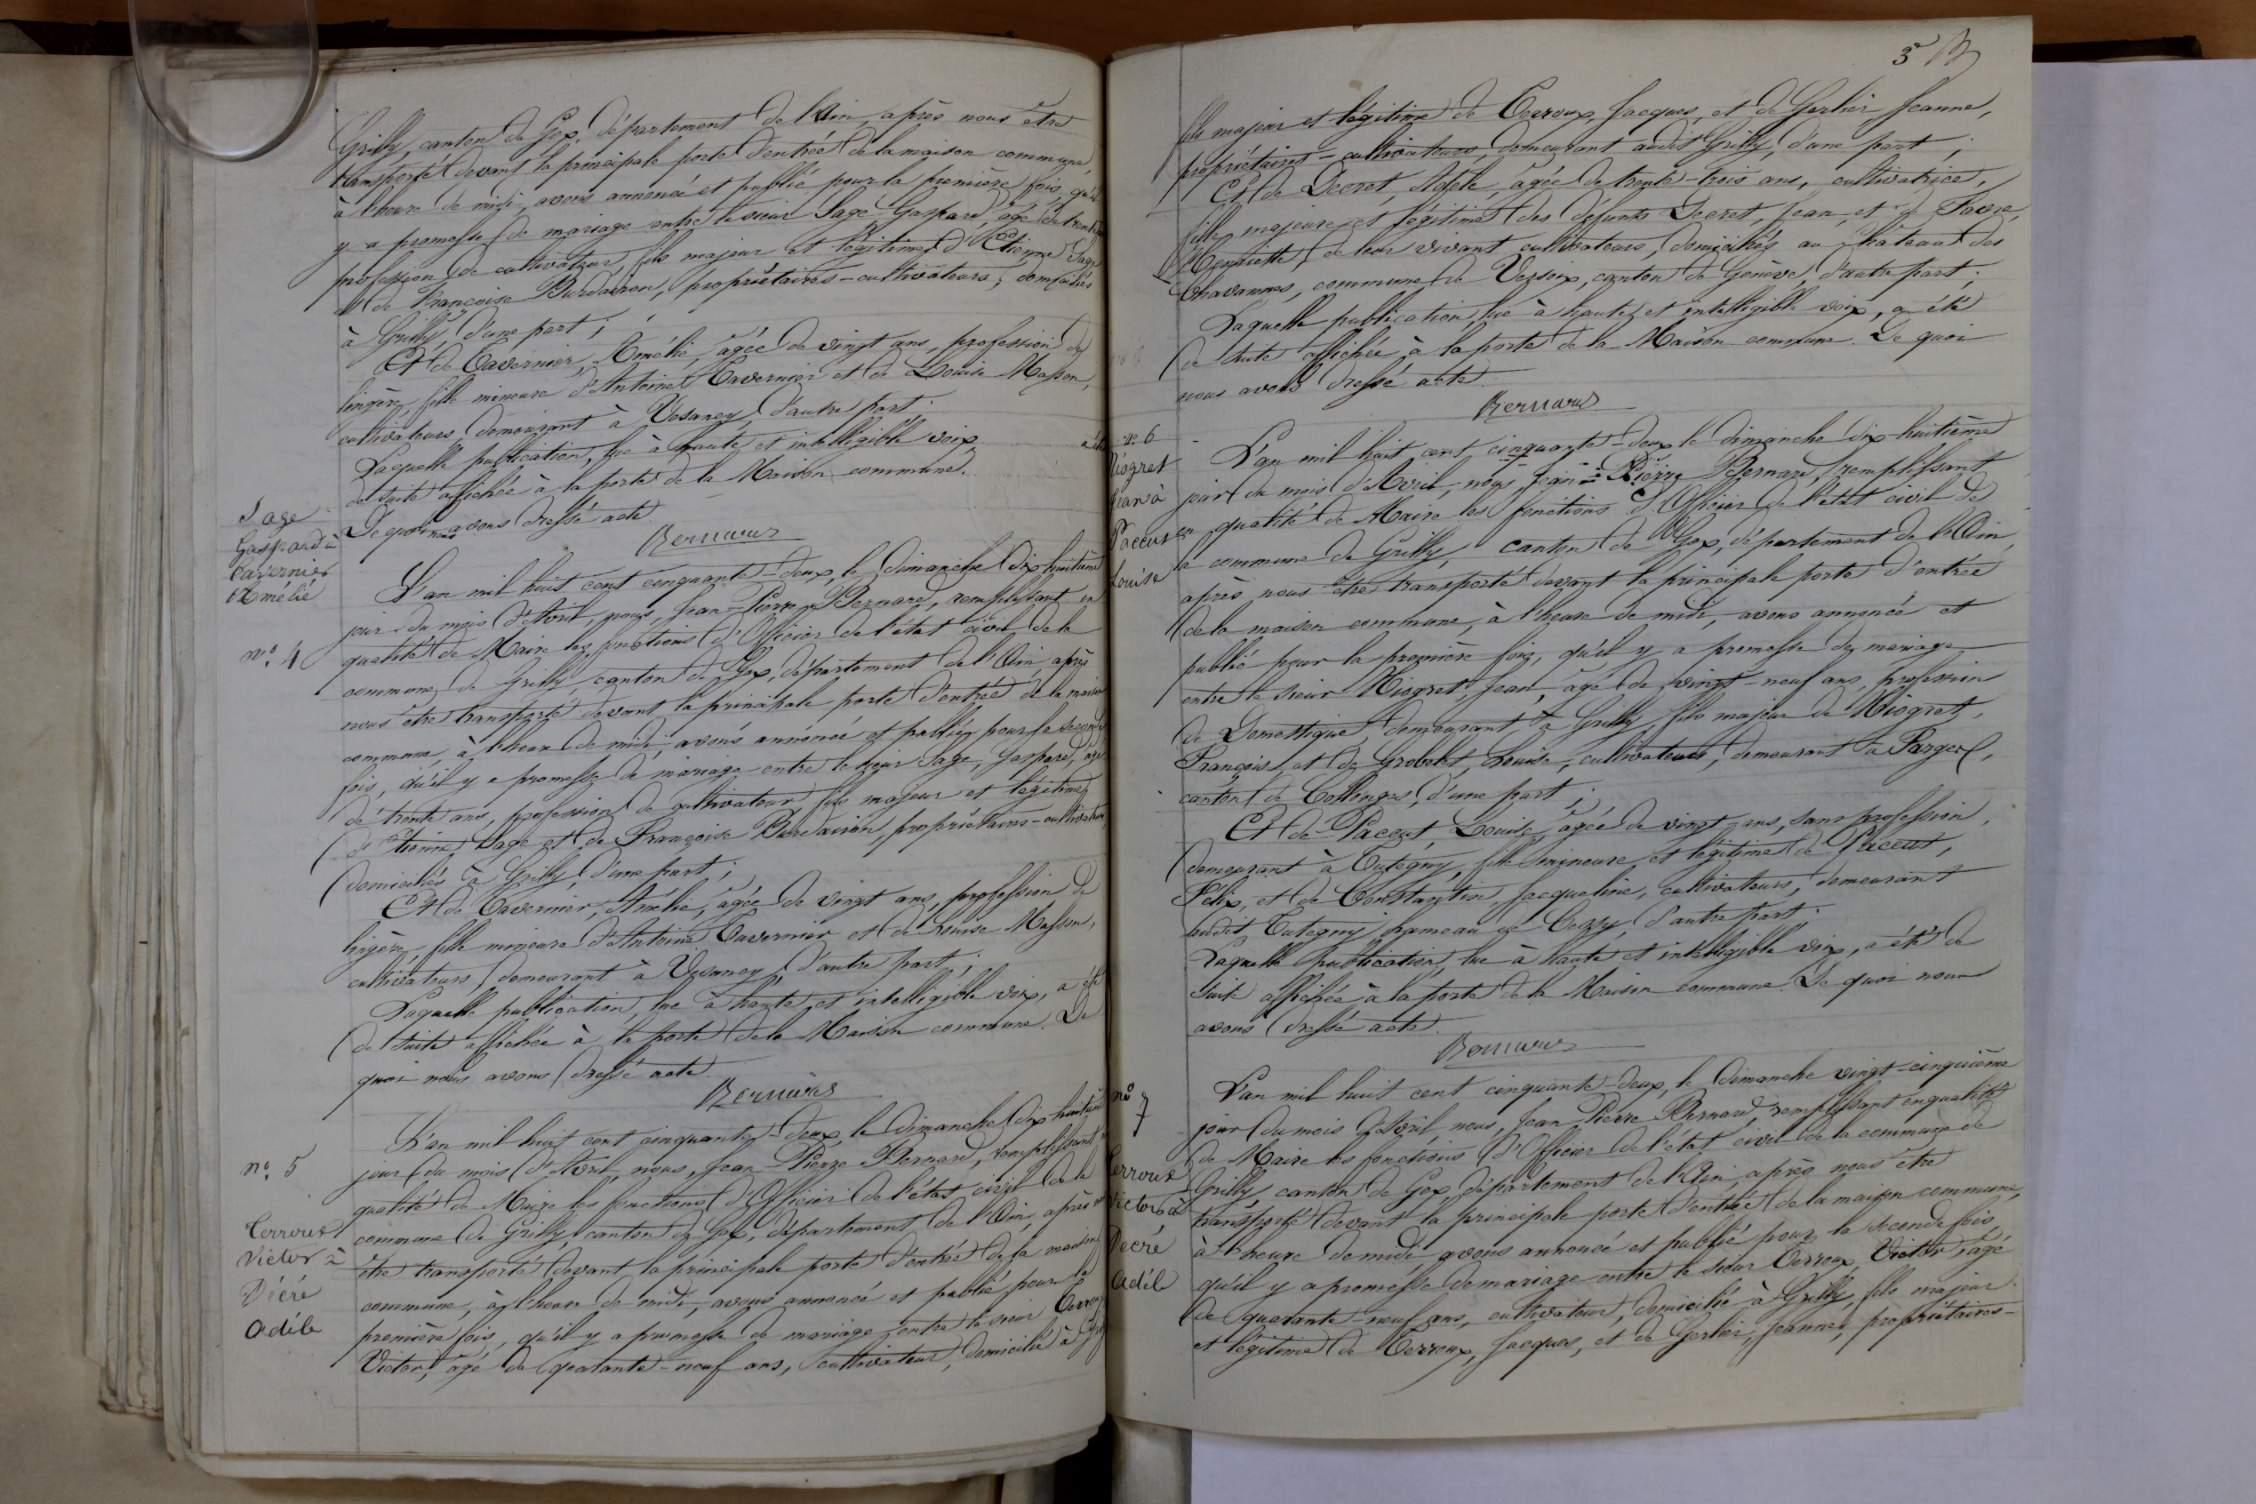 Grilly, canton de Gex, département de l'Ain, après nous être
transporté devant la principale porte d'entrée de la maison commune,
à l'heure de midi, avons annoncé et publié pour la première fois, qu'il
y a promesse de mariage entre le sieur Sage Gaspard, âgé de trente
profession de cultivateur, fils majeur et légitime d'Etienne Sage
et de Françoise Burdairon, propriétaires-cultivateurs, domiciliés
à Grilly, d'une part;
Et de Tavernier, Amélie, âgée de vingt ans, profession de
lingère, fille mineure d'Antoine Tavernier et de Louise Masson,
cultivateurs demeurant à Vesancy, d'autre part;
Laquelle publication, lue à haute et intelligible voix, a été
de suite affichée à la porte de la Maison commune.
De quoi nous avons dressé acte.
Bernard
Sage
Gaspard à
Tavernier
Amélie
n.° 4
L'an mil huit cent cinquante-deux, le dimanche dix-huitième
jour du mois d'Avril, nous, Jean-Pierre Bernard, remplissant en
qualité de Maire les fonctions d'Officier de l'état civil de la
commune de Grilly, canton de Gex, département de l'Ain, après
nous être transporté devant la principale porte d'entrée de la maison
commune, à l'heure de midi, avons annoncé et publié pour la seconde
fois, qu'il y a promesse de mariage entre le sieur Sage, Gaspard, âgé
de trente ans, profession de cultivateur, fils majeur et légitime
d'Etienne Sage et de Françoise Burdairon, propriétaires-cultivateurs,
domiciliés à Grilly, d'une part;
Et de Tavernier, Amélie, âgée de vingt ans, profession de
lingère, fille mineure d'Antoine Tavernier et de Louise Masson,
cultivateurs demeurant à Vesancy, d'autre part;
Laquelle publication, lue à haute et intelligible voix, a été
de suite affichée à la porte de la Maison commune. De
quoi nous avons dressé acte.
Bernard
n.° 5
Terroux
Victor à
Décré
Adèle
L'an mil huit cent cinquante-deux, le dimanche dix-huitième
jour du mois d'Avril, nous, Jean Pierre Bernard, remplissant en
qualité de Maire les fonctions d'Officier de l'état civil de la
commune de Grilly, canton de Gex, département de l'Ain, après nous
être transporté devant la principale porte d'entrée de la maison
commune, à l'heure de midi, avons annoncé et publié pour la
première fois, qu'il y a promesse de mariage entre le sieur Terroux
Victor, âgé de quarante-neuf ans, cultivateur, domicilié à Grilly
3e
fils majeur et légitime de Terroux, Jacques, et de Gerlier Jeanne,
propriétaires-cultivateurs, demeurant audit Grilly, d'une part;
Et de Decret, Adèle, âgée de trente-trois ans, cultivatrice,
fille majeure et légitime des défunts Decret, Jean, et de Favre,
Henriette, de leur vivant cultivateurs, domiciliés au château des
Chavannes, commune de Versoix, canton de Genève, d'autre part;
Laquelle publication, lue à haute et intelligible voix, a été
de suite affichée à la porte de la Maison commune. De quoi
nous avons dressé acte.
Bernard
n.° 6
Miogret
Jean à
Paccut
Louise
L'an mil huit cent cinquante-deux le dimanche dix-huitième
jour du mois d'Avril, nous, Jean-Pierre Bernard, remplissant
en qualité de Maire les fonctions d'Officier de l'état civil de
la commune de Grilly, canton de Gex, département de l'Ain,
après nous être transporté devant la principale porte d'entrée
de la maison commune, à l'heure de midi, avons annoncé et
publié pour la première fois, qu'il y a promesse de mariage
entre le sieur Miogret, Jean, âgé de vingt-neuf ans, profession
de Domestique, demeurant à Grilly, fils majeur de Miogret,
François, et de Grobelet, Louise, cultivateurs, demeurant à Farges,
canton de Collonges, d'une part;
Et de Paccut, Louise, âgée de vingt ans, sans profession,
demeurant à Tutegny, fille mineure et légitime de Paccut,
Félix, et de Constantin, Jacqueline, cultivateurs, demeurant
audit Tutegny, hameau de Cessy, d'autre part;
Laquelle publication, lue à haute et intelligible voix, a été de
suite affichée à la porte de la Maison commune. De quoi nous
avons dressé acte.
Bernard
n° 7
Terroux
Victor à
Décré
Adèle
L'an mil huit cent cinquante-deux, le dimanche vingt-cinquième
jour du mois d'Avril, nous, Jean Pierre Bernard, remplissant en qualité
de Maire les fonctions d'Officier de l'état civil de la commune de
Grilly, canton de Gex, département de l'Ain, après nous être
transporté devant la principale porte d'entrée de la maison commune,
à l'heure de midi, avons annoncé et publié pour la seconde fois,
qu'il y a promesse de mariage entre le sieur Terroux, Victor, âgé
de quarante-neuf ans, cultivateur, domicilié à Grilly, fils majeur
et légitime de Terroux, Jacques, et de Gerlier, Jeanne, propriétaires-